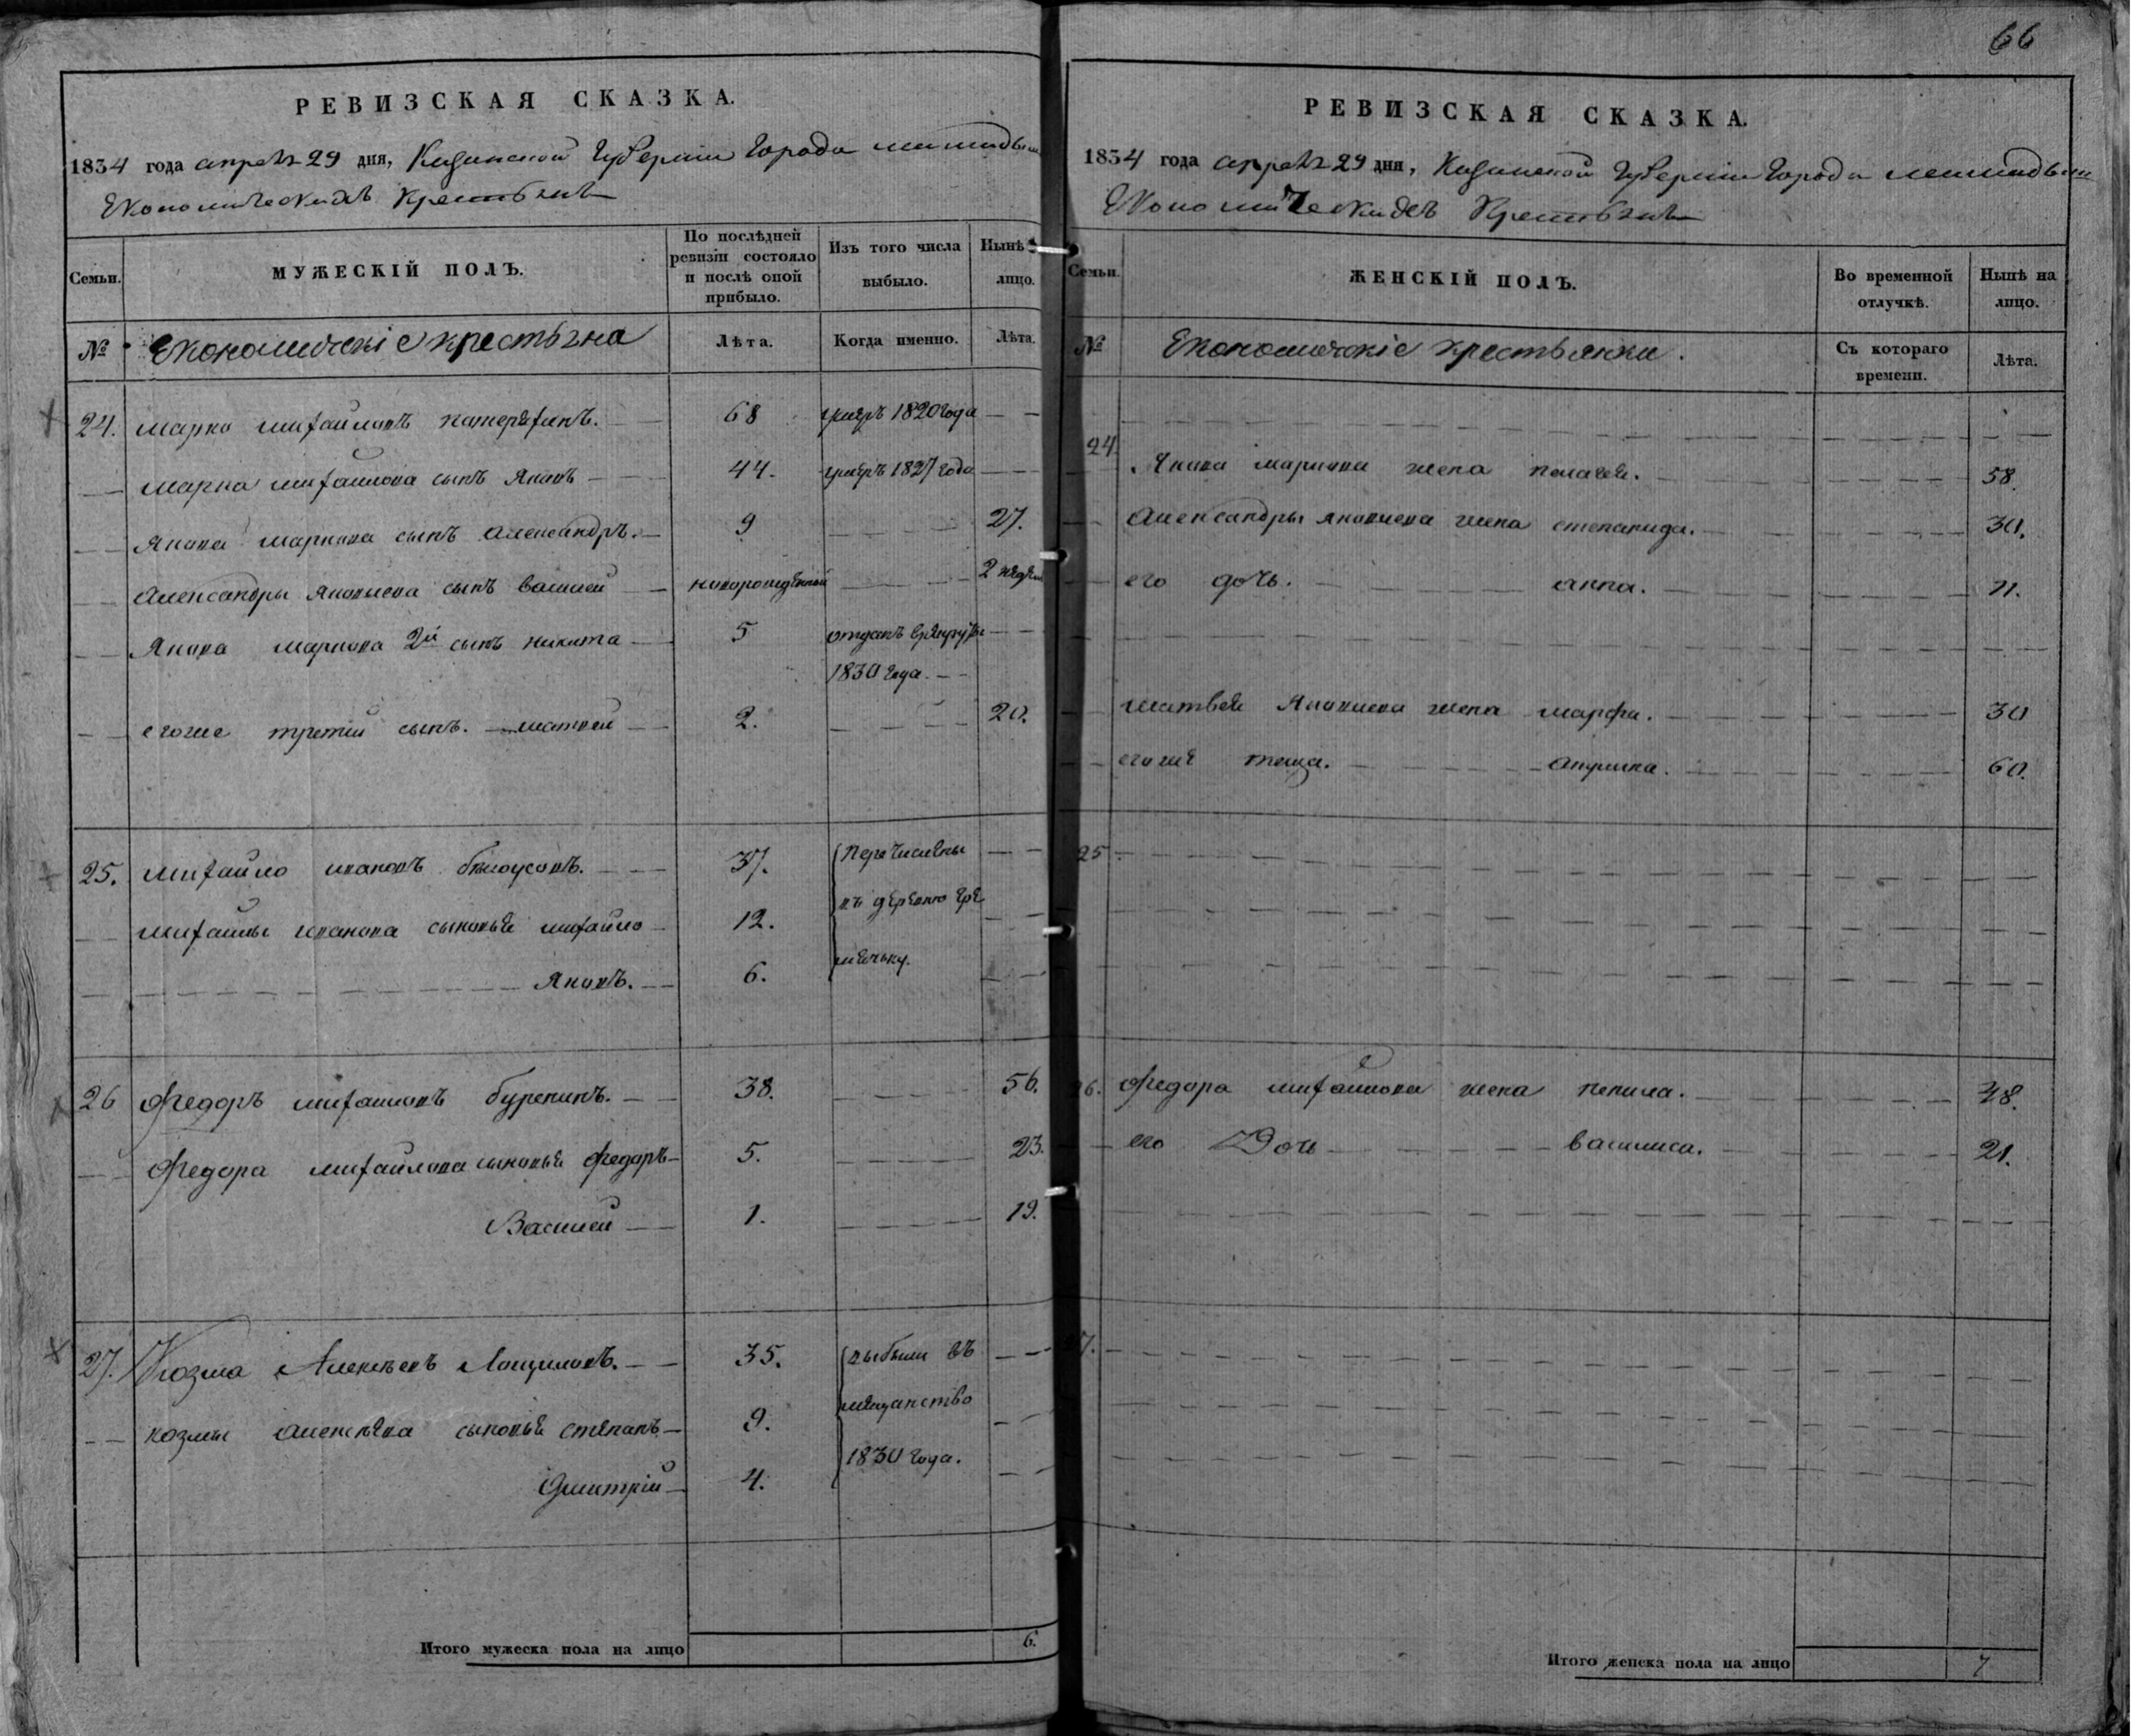 РЕВИЗСКАЯ СКАЗКА.
1834 года апреля 29 дня, Казанской Губернии Города
Економическихъ Крестьянъ
Семьи.
МУЖЕСКІЙ ПОЛЪ.
По послѣдней ревизіи состояло и послѣ оной прибыло.
Изъ того числа выбыло.
Нынѣ лицо.
№
Економическіе крестьяна
Лѣта.
Когда именно.
Лѣта.
24. марко михайловъ 68 умеръ 1820 года
марка михайлова сынъ Яковъ 44. умеръ 1827 года
Якова маркова сынъ александръ. 9 27.
александры яковлева сынъ василей новорожденной 2 недели
Якова маркова 2й сынъ никита 5 отданъ врекруты
1830 года.
егоже третий сынъ. матвей 2. 20.
25. михайло ивановъ белоусовъ. 37. перечислены
михайлы иванова сыновья михайло 12. въ деревню гре
Яковъ. 6. мечьку.
26 Федоръ михайловъ буренинъ. 38. 56.
Федора михайлова сыновья федоръ 5. 23.
Василей 1. 19.
27. Козма Алексеевъ Лощиловъ. 35. выбыли въ
козмы алексеева сыновья степанъ 9. мещанство
Дмитрій 4. 1830 года.
Итого мужеска пола на лицо 6.
66
РЕВИЗСКАЯ СКАЗКА.
1834 года апреля 29 дня, Казанской Губернии Города
Економическихъ Крестьянъ
Семьи.
ЖЕНСКІЙ ПОЛЪ.
Во временной отлучкѣ.
Нынѣ на лицо.
№
Економическіе крестьянки.
Съ котораго времени.
Лѣта.
24.
Якова маркова жена пелагея. 58.
александры яковлева жена степанида. 30.
его дочь. анна. 11.
матвея Яковлева жена марфа. 30
егоже теща. 60.
25
26. Федора михайлова жена ненила. 48.
его Дочь василиса. 21.
27.
Итого женска пола на лицо 7